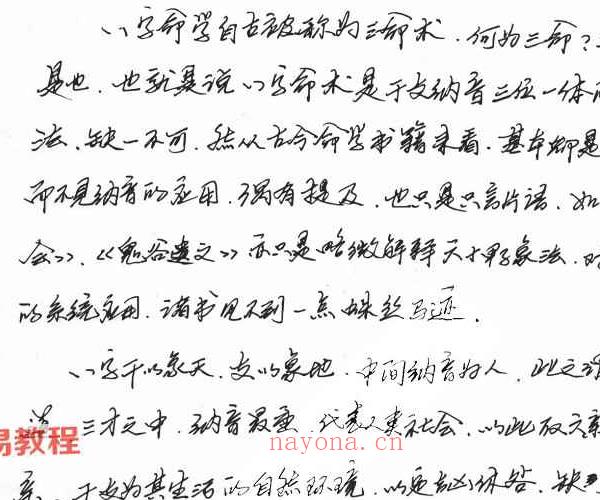 八字命学自古被称为三命术，何为三命？
是也，也就是说八字命术是干支纳音三位一体
法，缺一不可，然从古今命学书籍来看，基本都是
而不见纳音的应用，偶有提及，也只是只言片语，如
会》》、《《鬼谷遗文》》亦只是略微解释天干取象法，对
的系统应用，诸书见不到一点蛛丝马迹。
八字干以象天，支以象地，中间纳音为人，此之谓
三才之中，纳音最重，代表人类社会，以此放之
系，干支为其生活的自然环境，以定吉凶休咎，缺
易教程
nayona.cn